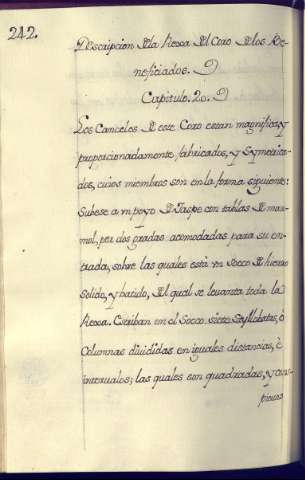 242.
Descripcion de la Rexa del Coro de los Be-
neficiados.
Capitulo. 20.
Los Canceles de este Coro estan magnifica, y
proporcionadamente fabricados, y symetria-
dos, cuios miembros son en la forma siguiente:
Subese a un poyo de Jaspe con tablas de mar-
mol, por dos gradas acomodadas para su en-
trada, sobre las quales està un Socco de hierro
solido, y batido, del qual se levanta toda la
Rexa. Estriban en el Socco siete Styllobatas, ò
Columnas divididas en iguales distancias, è
intervalos; las quales son quadradas, y